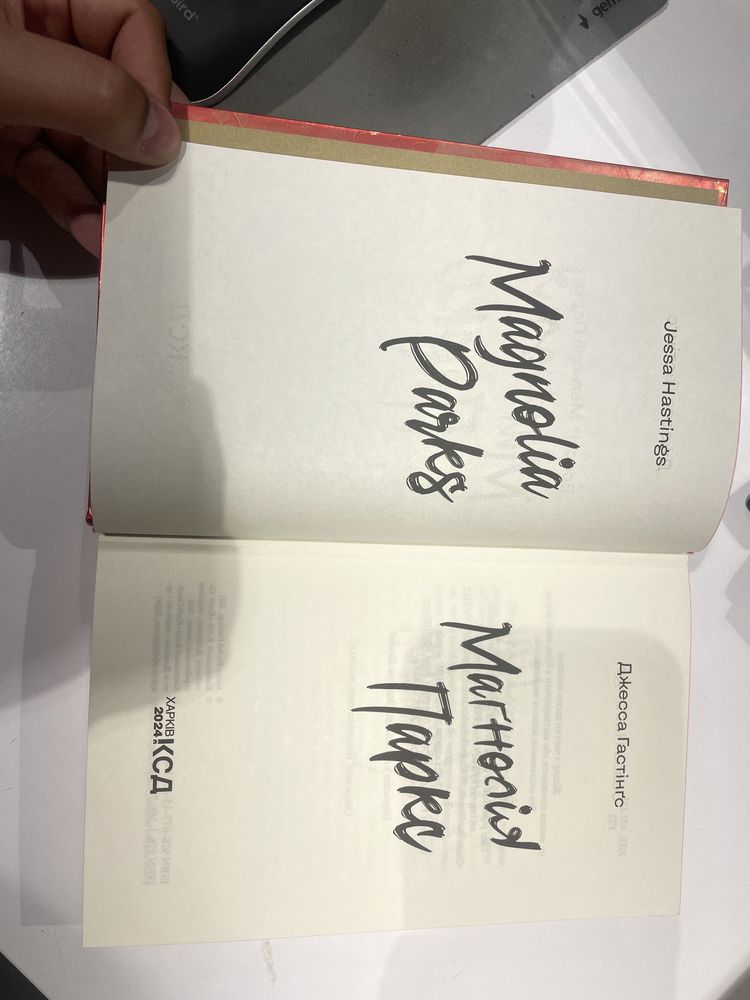 Jessa Hastings
Magnolia
Parks
Джесса Гастінґс
Маґнолія
Паркс
ХАРКІВ
2024
КСД